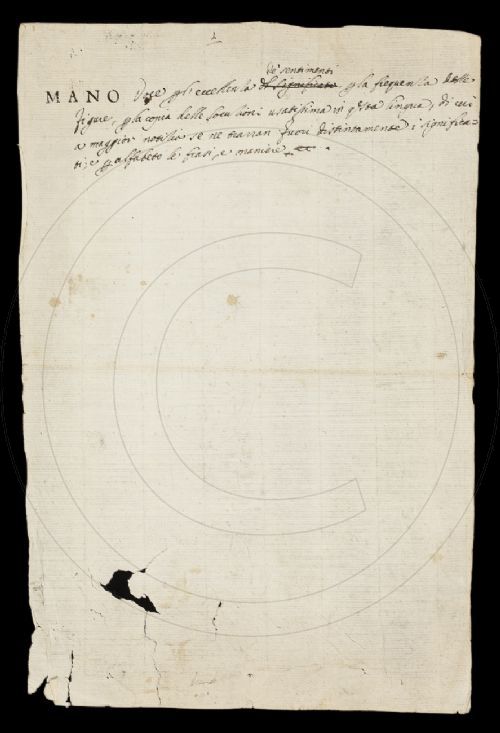 1
de' sentimenti
MANO Voce pl' eccellenza del significato p la frequenza delle
figure, p la copia delle locuzioni usatissima in q'sta lingua, di cui
a maggior notizia se ne trarran fuori distintamente i significa=
ti, e p alfabeto le frasi, e maniere